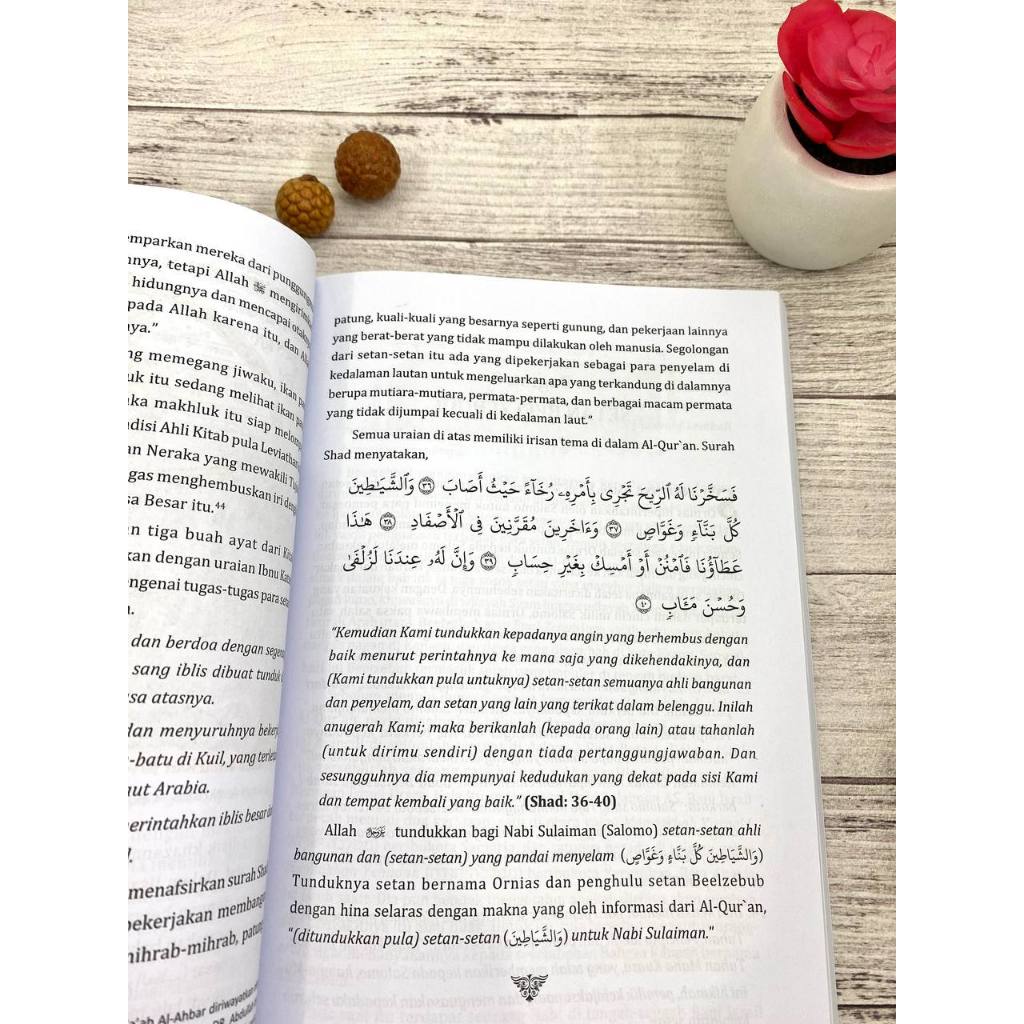 emparkan mereka dari punggung
nnya, tetapi Allah ﷻ mengirimkan
hidungnya dan mencapai otaknya
pada Allah karena itu, dan
ya."
ng memegang jiwaku, ikan
uk itu sedang melihat ikan
aka makhluk itu siap
adisi Ahli Kitab pula Leviathan
an Neraka yang mewakili
gas menghembuskan iri
sa Besar itu.⁴⁴
n tiga buah ayat dari
kan dengan uraian Ibnu
mengenai tugas-tugas para
a.
dan berdoa dengan
sang iblis dibuat tunduk
sa atasnya.
dan menyuruhnya
-batu di Kuil, yang
aut Arabia.
erintahkan iblis
l.
menafsirkan surah
pekerjakan
mihrab-mihrab,
a'ah Al-Ahbar diriwayatkan
patung, kuali-kuali yang besarnya seperti gunung, dan pekerjaan lainnya
yang berat-berat yang tidak mampu dilakukan oleh manusia. Segolongan
dari setan-setan itu ada yang dipekerjakan sebagai para penyelam di
kedalaman lautan untuk mengeluarkan apa yang terkandung di dalamnya
berupa mutiara-mutiara, permata-permata, dan berbagai macam permata
yang tidak dijumpai kecuali di kedalaman laut."
Semua uraian di atas memiliki irisan tema di dalam Al-Qur`an. Surah
Shad menyatakan,
فَسَخَّرْنَا لَهُ ٱلرِّيحَ تَجْرِى بِأَمْرِهِۦ رُخَآءً حَيْثُ أَصَابَ ﴿٣٦﴾ وَٱلشَّيَـٰطِينَ
كُلَّ بَنَّآءٍ وَغَوَّاصٍ ﴿٣٧﴾ وَءَاخَرِينَ مُقَرَّنِينَ فِى ٱلْأَصْفَادِ ﴿٣٨﴾ هَـٰذَا
عَطَآؤُنَا فَٱمْنُنْ أَوْ أَمْسِكْ بِغَيْرِ حِسَابٍ ﴿٣٩﴾ وَإِنَّ لَهُۥ عِندَنَا لَزُلْفَىٰ
وَحُسْنَ مَـَٔابٍ ﴿٤٠﴾
"Kemudian Kami tundukkan kepadanya angin yang berhembus dengan
baik menurut perintahnya ke mana saja yang dikehendakinya, dan
(Kami tundukkan pula untuknya) setan-setan semuanya ahli bangunan
dan penyelam, dan setan yang lain yang terikat dalam belenggu. Inilah
anugerah Kami; maka berikanlah (kepada orang lain) atau tahanlah
(untuk dirimu sendiri) dengan tiada pertanggungjawaban. Dan
sesungguhnya dia mempunyai kedudukan yang dekat pada sisi Kami
dan tempat kembali yang baik." (Shad: 36-40)
Allah ﷻ tundukkan bagi Nabi Sulaiman (Salomo) setan-setan ahli
bangunan dan (setan-setan) yang pandai menyelam (وَالشَّيَاطِينَ كُلَّ بَنَّاءٍ وَغَوَّاصٍ)
Tunduknya setan bernama Ornias dan penghulu setan Beelzebub
dengan hina selaras dengan makna yang oleh informasi dari Al-Qur`an,
"(ditundukkan pula) setan-setan (وَالشَّيَاطِينَ) untuk Nabi Sulaiman."